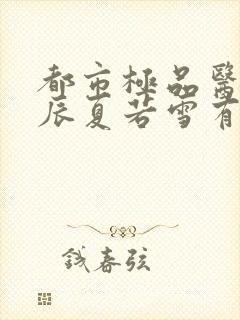 都市極品醫
辰夏若雪有
錢春弦